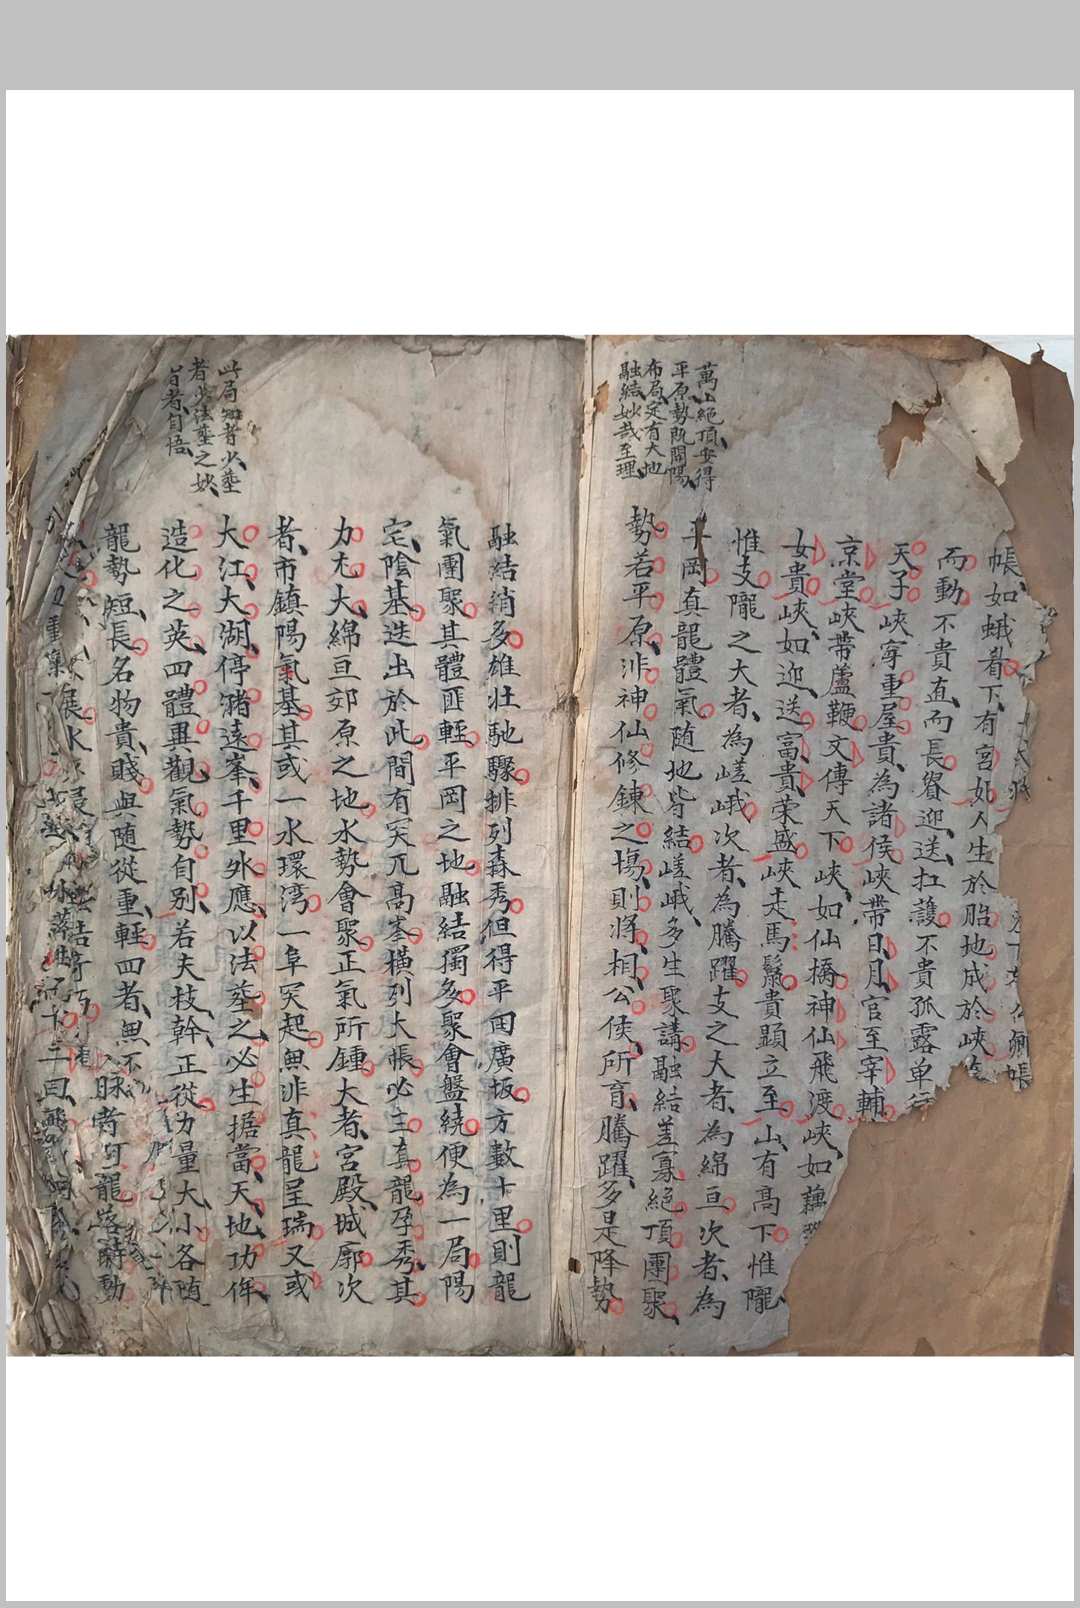 萬山絕頂要得
平原勢既開陽
布局定有大地
融結妙哉至理
公卿帳
帳如蛾眉下有宮妃人生於胎地成於峽
而動不貴直而長貴迎送扛護不貴孤露单行
天子峽穿重屋貴為諸侯峽帶日月官至宰輔
京堂峽帶蘆鞭文傳天下峽如仙橋神仙飛渡峽如藕
女貴峽如迎送富貴荣盛峽走馬鬃貴顯立至山有高下惟隴
惟支隴之大者為嵯峨次者為騰躍支之大者為綿亘次者為
平岡真龍體氣随地皆結嵯峨多生聚講融結差寡絕頂團聚
勢若平原非神仙修鍊之塲則將相公侯所育騰躍多是降勢
此局知者少塟
者少法塟之妙
旨者自悟
融結稍多雄壮馳驟排列森秀但得平田廣坂方數十里則龍
氣團聚其體匪輕平岡之地融結獨多聚會盤繞便為一局陽
宅陰基迭出於此間有突兀高峯橫列大帳必主真龍孕秀其
力尤大綿亘郊原之地水勢會聚正氣所鍾大者宮殿城廓次
者市鎮陽氣基其或一水環湾一阜突起無非真龍呈瑞又或
大江大湖停潴遠峯千里外應以法塟之必生据當天地功侔
造化之英四體異觀氣勢自别若夫枝幹正從力量大小各随
龍勢短長名物貴賤與随從重輕四者無不